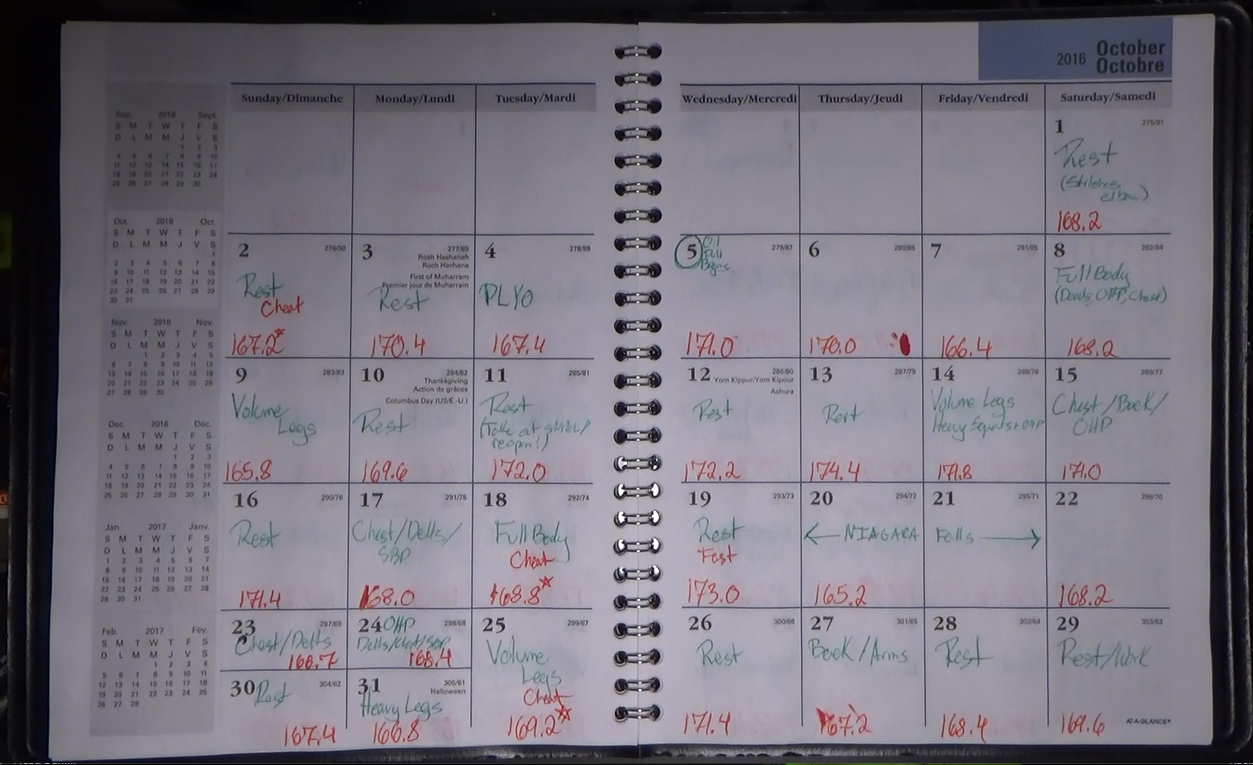 2016 October
Octobre
Sunday/Dimanche
Monday/Lundi
Tuesday/Mardi
Wednesday/Mercredi
Thursday/Jeudi
Friday/Vendredi
Saturday/Samedi
1
275/91
Rest
(Stitches
elbow)
168.2
2
276/90
Rest
Cheat
167.2*
3
277/89
Rosh Hashanah
Roch Hachana
First of Muharram
Premier jour de Muharram
Rest
170.4
4
278/88
PLYO
167.4
5
279/87
Oil
Pull
Begins
171.0
6
280/86
170.0
7
281/85
166.4
8
282/84
Full Body
(Deads, OHP, Chest)
168.2
9
283/83
Volume
Legs
165.8
10
284/82
Thanksgiving
Action de grâces
Columbus Day (US/É.-U.)
Rest
169.6
11
285/81
Rest
172.0
12
286/80
Yom Kippur/Yom Kipour
Ashura
Rest
172.2
13
287/79
Rest
174.4
14
288/78
Volume Legs
Heavy Squats + OHP
171.8
15
289/77
Chest/Back/
OHP
171.0
16
290/76
Rest
171.4
17
291/75
Chest/Delts/
SBP
168.0
18
292/74
Full Body
Cheat
168.8*
19
293/73
Rest
Fast
173.0
20
294/72
← NIAGARA
165.2
21
295/71
Falls →
22
296/70
168.2
23
297/69
Chest/Delts
24
298/68
OHP
168.4
25
299/67
Volume
Legs
Cheat
169.2*
26
300/66
Rest
171.4
27
301/65
Back/Arms
167.2
28
302/64
Rest
168.4
29
303/63
Rest/Work
169.6
30
304/62
Rest
167.4
31
305/61
Halloween
Heavy Legs
166.8
AT-A-GLANCE®
Sep. 2016 Sept.
S M T W T F S
D L M M J V S
1 2 3
4 5 6 7 8 9 10
11 12 13 14 15 16 17
18 19 20 21 22 23 24
25 26 27 28 29 30
Oct. 2016 Oct.
S M T W T F S
D L M M J V S
1
2 3 4 5 6 7 8
9 10 11 12 13 14 15
16 17 18 19 20 21 22
23 24 25 26 27 28 29
30 31
Nov. 2016 Nov.
S M T W T F S
D L M M J V S
1 2 3 4 5
6 7 8 9 10 11 12
13 14 15 16 17 18 19
20 21 22 23 24 25 26
27 28 29 30
Dec. 2016 Déc.
S M T W T F S
D L M M J V S
1 2 3
4 5 6 7 8 9 10
11 12 13 14 15 16 17
18 19 20 21 22 23 24
25 26 27 28 29 30 31
Jan. 2017 Janv.
S M T W T F S
D L M M J V S
1 2 3 4 5 6 7
8 9 10 11 12 13 14
15 16 17 18 19 20 21
22 23 24 25 26 27 28
29 30 31
Feb. 2017 Fév.
S M T W T F S
D L M M J V S
1 2 3 4
5 6 7 8 9 10 11
12 13 14 15 16 17 18
19 20 21 22 23 24 25
26 27 28